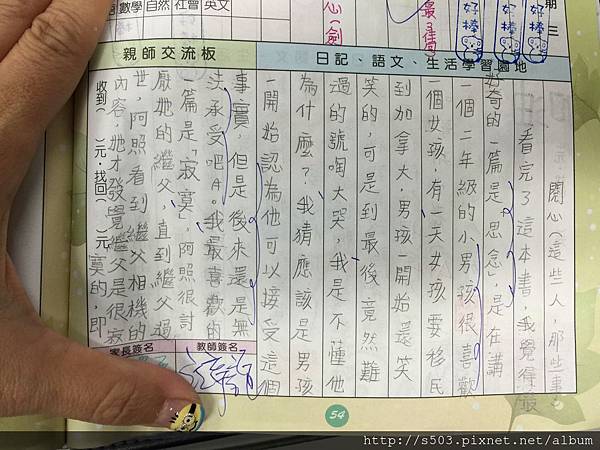 數學 自然 社會 英文
心(劍
期三
好棒
好棒
好棒
親師交流板
日記、語文、生活學習園地
閱心(這些人,那些事
看完了這本書,我覺得最
好奇的一篇是「思念」,是在講
一個二年級的小男孩很喜歡
一個女孩,有一天女孩要移民
到加拿大,男孩一開始還笑
笑的,可是到最後竟然難
過的號啕大哭,我是不懂他
為什麼?我猜應該是男孩
一開始認為他可以接受這個
事實,但是後來還是無
法承受吧。我最喜歡的
一篇是「寂寞」,阿照很討
厭她的繼父,直到繼父過
世,阿照看到繼父相機的
內容,她才發覺繼父是很寂
寞的,即
收到( )元,找回( )元
家長簽名
教師簽名
54
http://s503.pixnet.net/album